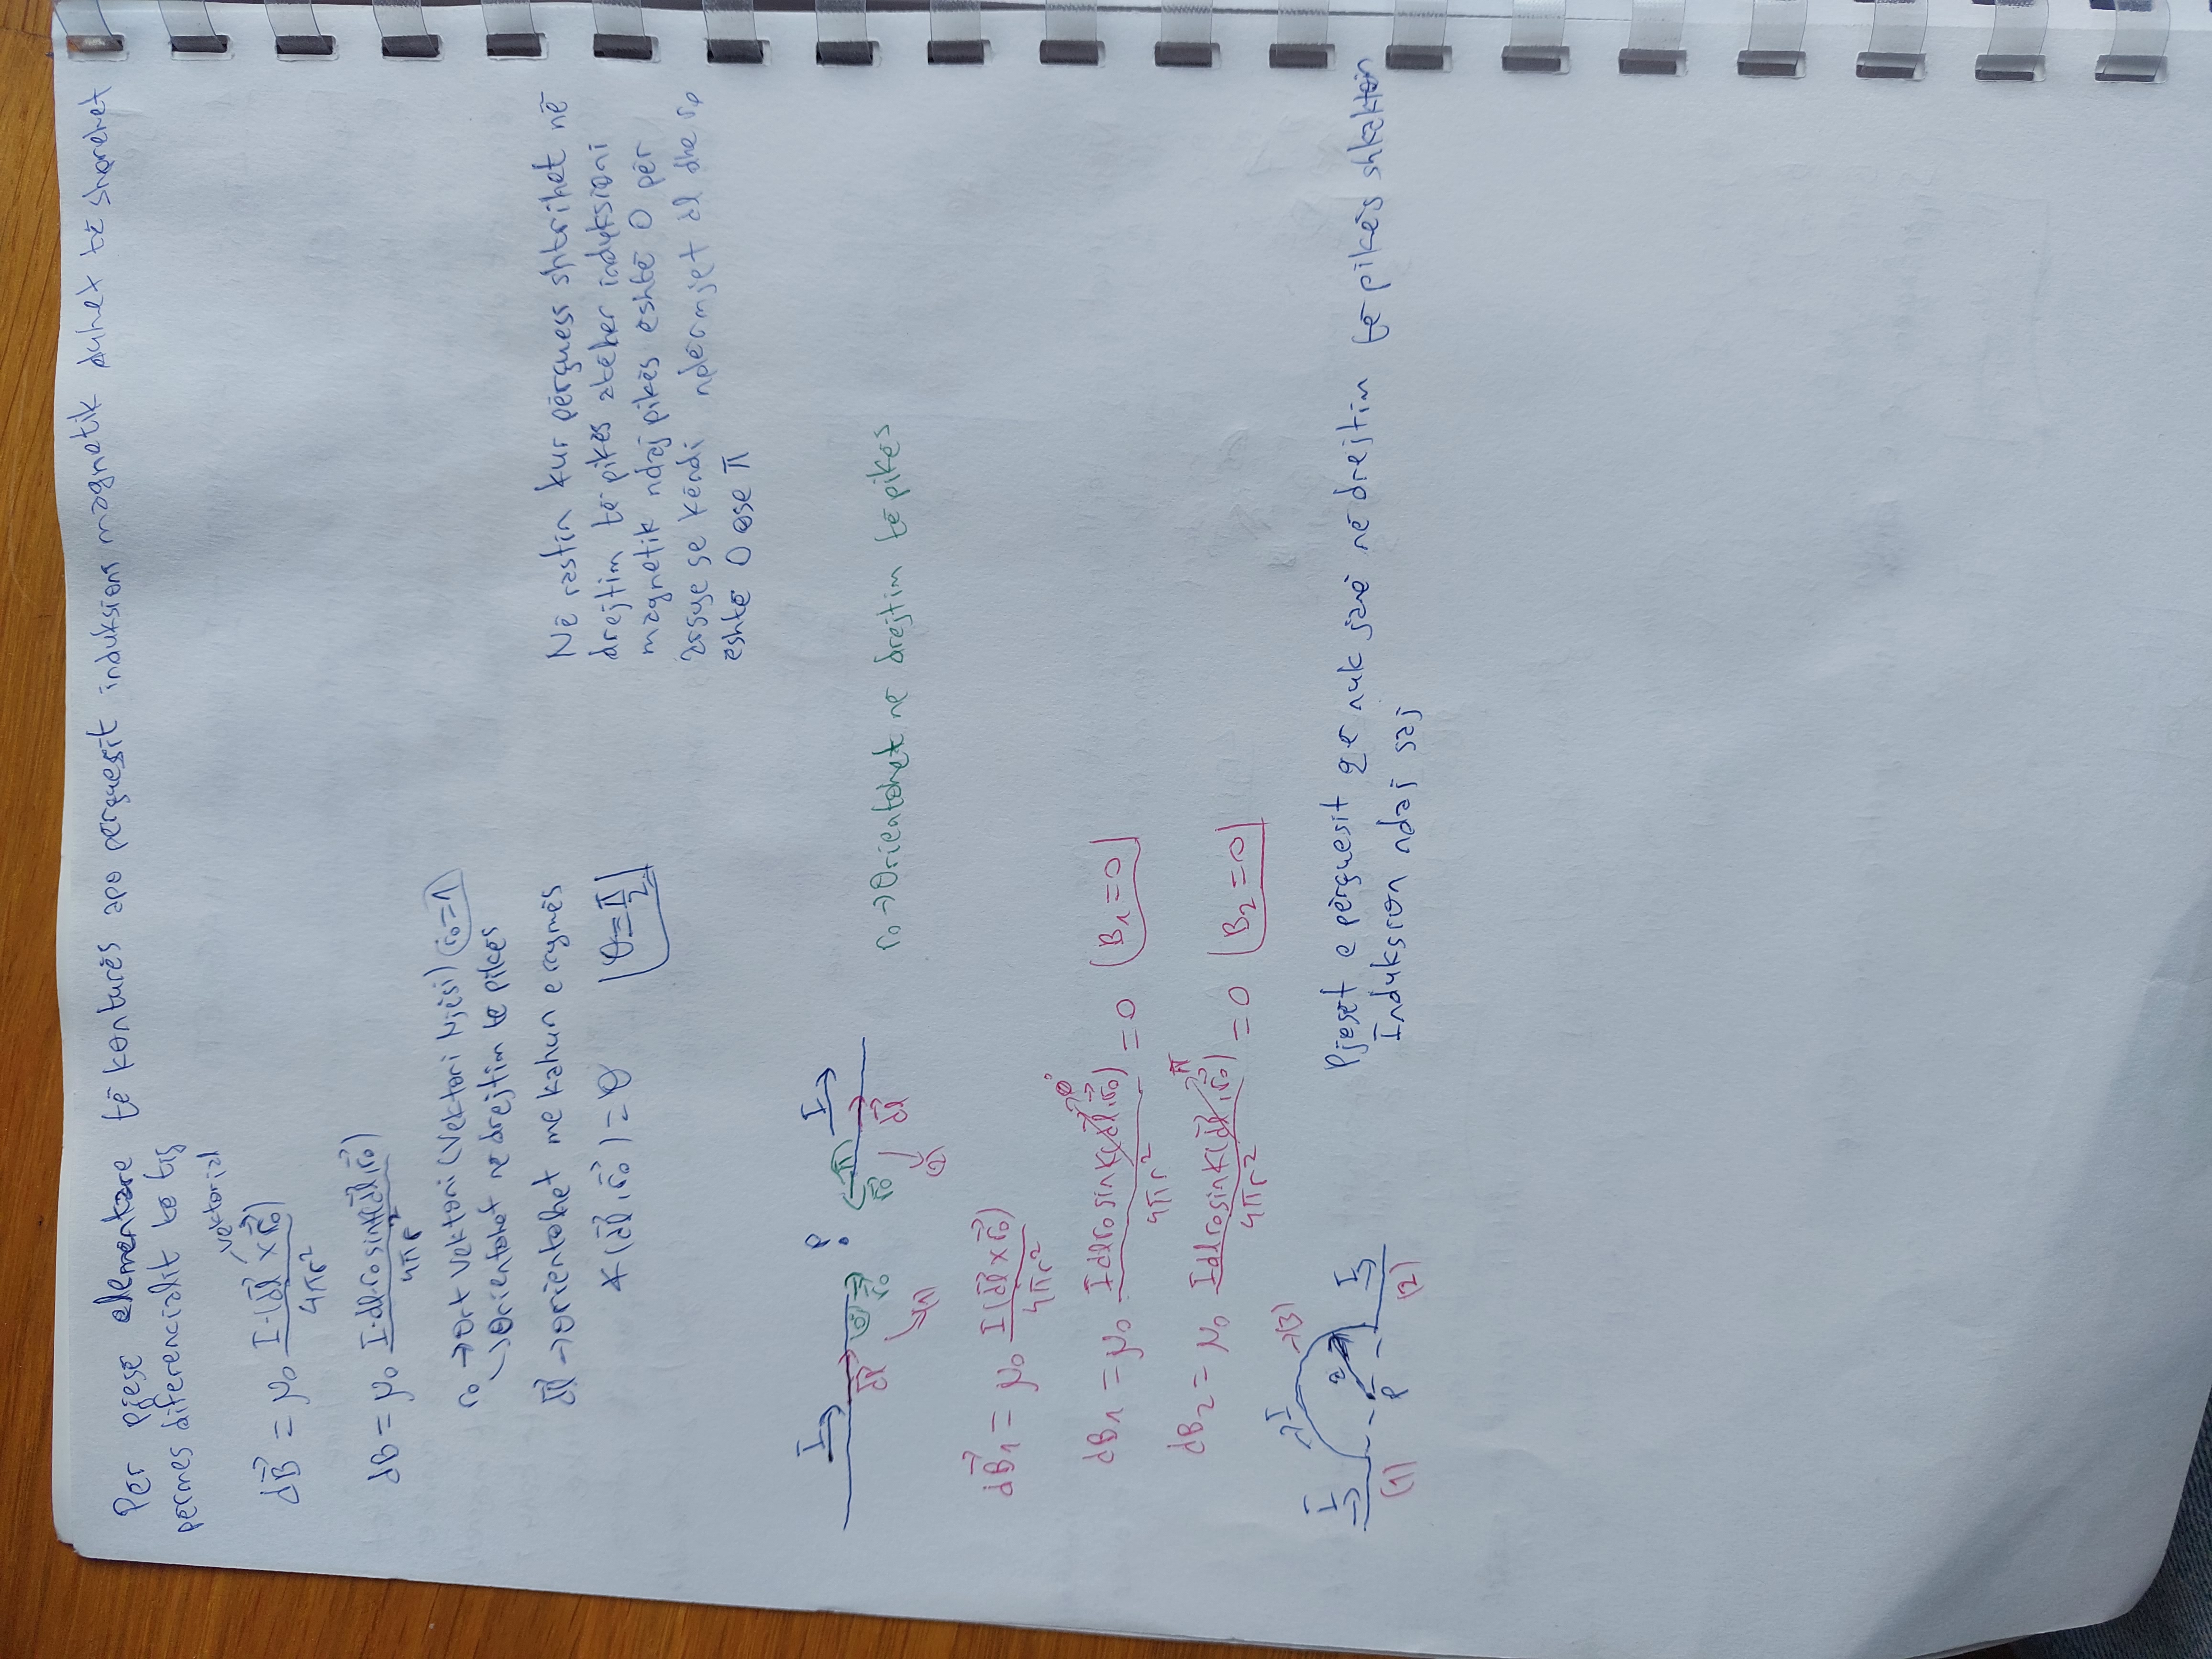 Per pjesë elementare të konturës apo përçuesit induksioni magnetik duhet të shprehet
përmes diferencialit të tij
vektorial
dB⃗ = μ₀ I·(dl⃗ × r₀⃗) / 4πr²
dB = μ₀ I·dl·r₀ sin∢(dl⃗, r₀⃗) / 4πr²
r₀ → Ort vektori (Vektori Njësi) r₀ = 1
↳ Orientohet në drejtim të pikës
dl⃗ → orientohet me kahun e rrymës
∢(dl⃗, r₀⃗) = θ θ = π/2
Në rastin kur përçuesi shtrihet në
drejtim të pikës atëher induksioni
magnetik ndaj pikës është 0 për
arsye se këndi ndërmjet dl dhe r₀
është 0 ose π
I P I
dl⃗ 0° r₀⃗ r₀⃗ π dl⃗
(1) (2)
r₀ → Orientohet në drejtim të pikës
dB⃗₁ = μ₀ I(dl⃗ × r₀⃗) / 4πr²
dB₁ = μ₀ I dl r₀ sin∢(dl⃗, r₀⃗) → 0° / 4πr² = 0 B₁ = 0
dB₂ = μ₀ I dl r₀ sin∢(dl⃗, r₀⃗) → π / 4πr² = 0 B₂ = 0
→ I → (3)
I a I
(1) P (2)
Pjeset e përçuesit që nuk janë në drejtim të pikës shkaktoin
Induksion ndaj saj